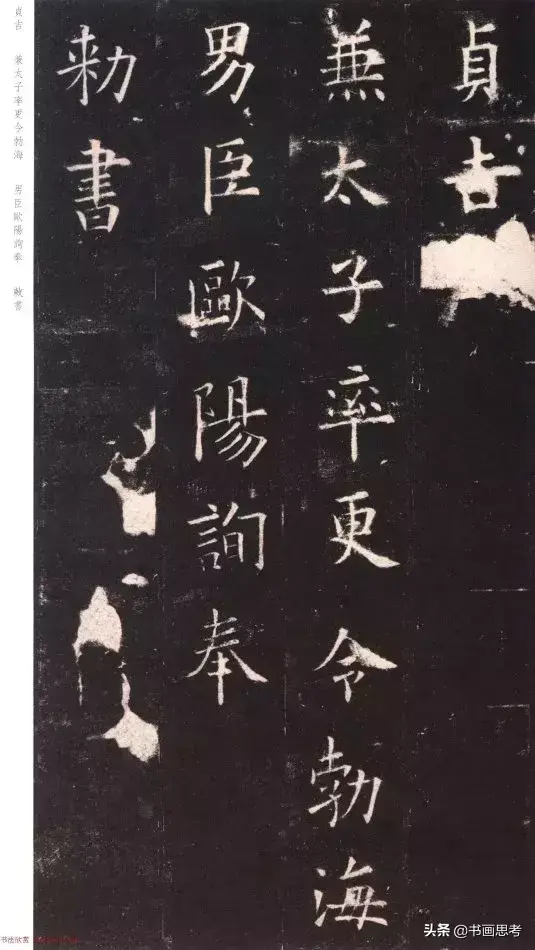 貞吉
兼太子率更令勃海
男臣歐陽詢奉
勑書
貞吉 兼太子率更令勃海 男臣歐陽詢奉 敕書
书法欣赏
头条 @书画思考